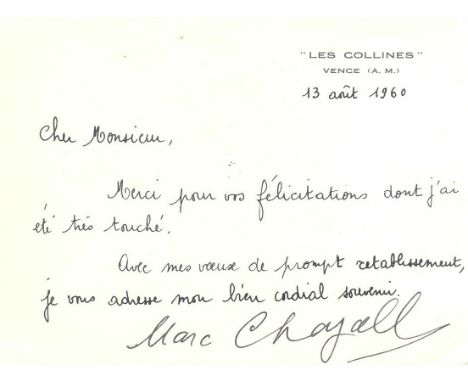 "LES COLLINES"
VENCE (A.M.)
13 août 1960
Cher Monsieur,
Merci pour vos félicitations dont j'ai
été très touché.
Avec mes vœux de prompt rétablissement,
je vous adresse mon bien cordial souvenir.
Marc Chagall